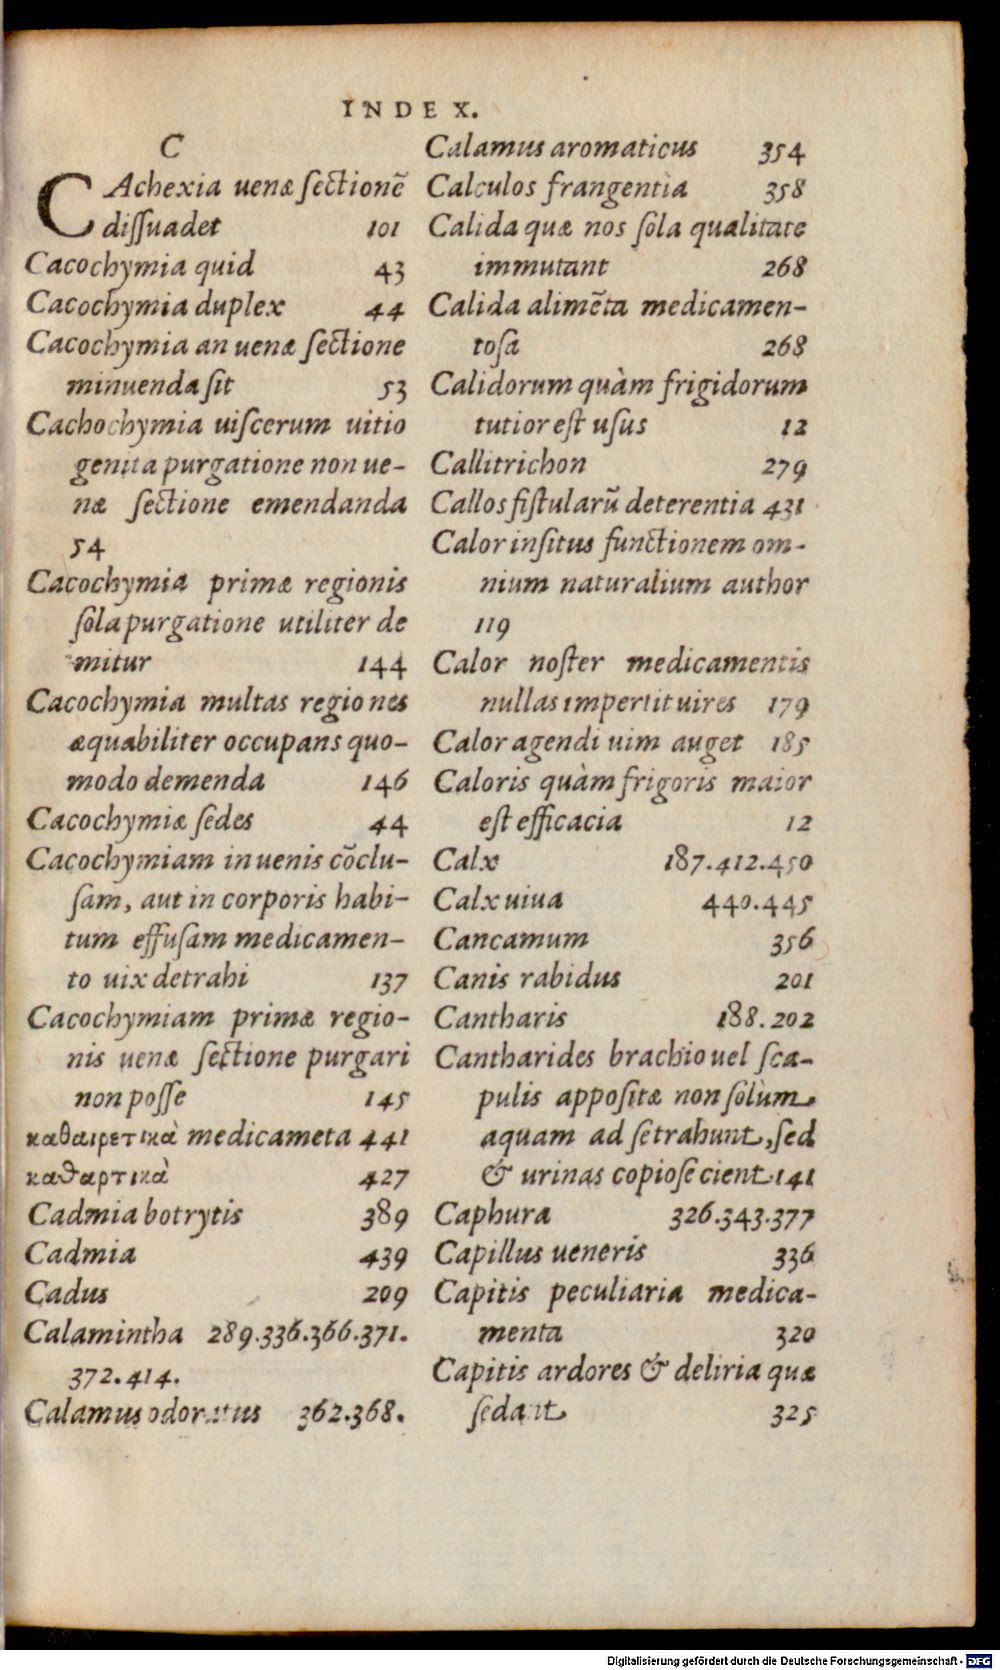 INDEX.
C
CAchexia uenæ ſectionē
diſſuadet 101
Cacochymia quid 43
Cacochymia duplex 44
Cacochymia an uenæ ſectione
minuenda ſit 53
Cachochymia uiſcerum uitio
genita purgatione non ue-
næ ſectione emendanda
54
Cacochymia primæ regionis
ſola purgatione utiliter de
mitur 144
Cacochymia multas regiones
æquabiliter occupans quo-
modo demenda 146
Cacochymiæ ſedes 44
Cacochymiam in uenis cōclu-
ſam, aut in corporis habi-
tum effuſam medicamen-
to uix detrahi 137
Cacochymiam primæ regio-
nis uenæ ſectione purgari
non poſſe 145
καθαιρετικὰ medicameta 441
καθαρτικὰ 427
Cadmia botrytis 389
Cadmia 439
Cadus 209
Calamintha 289.336.366.371.
372.414.
Calamus odoratus 362.368.
Calamus aromaticus 354
Calculos frangentia 358
Calida quæ nos ſola qualitate
immutant 268
Calida alimēta medicamen-
toſa 268
Calidorum quàm frigidorum
tutior eſt uſus 12
Callitrichon 279
Callos fiſtularū deterentia 431
Calor inſitus functionem om-
nium naturalium author
119
Calor noſter medicamentis
nullas impertit uires 179
Calor agendi uim auget 185
Caloris quàm frigoris maior
eſt efficacia 12
Calx 187.412.450
Calx uiua 440.445
Cancamum 356
Canis rabidus 201
Cantharis 188.202
Cantharides brachio uel ſca-
pulis appoſitæ non ſolùm
aquam ad ſe trahunt, ſed
& urinas copioſe cient 141
Caphura 326.343.377
Capillus ueneris 336
Capitis peculiaria medica-
menta 320
Capitis ardores & deliria quæ
ſedant 325
Digitalisierung gefördert durch die Deutsche Forschungsgemeinschaft - DFG